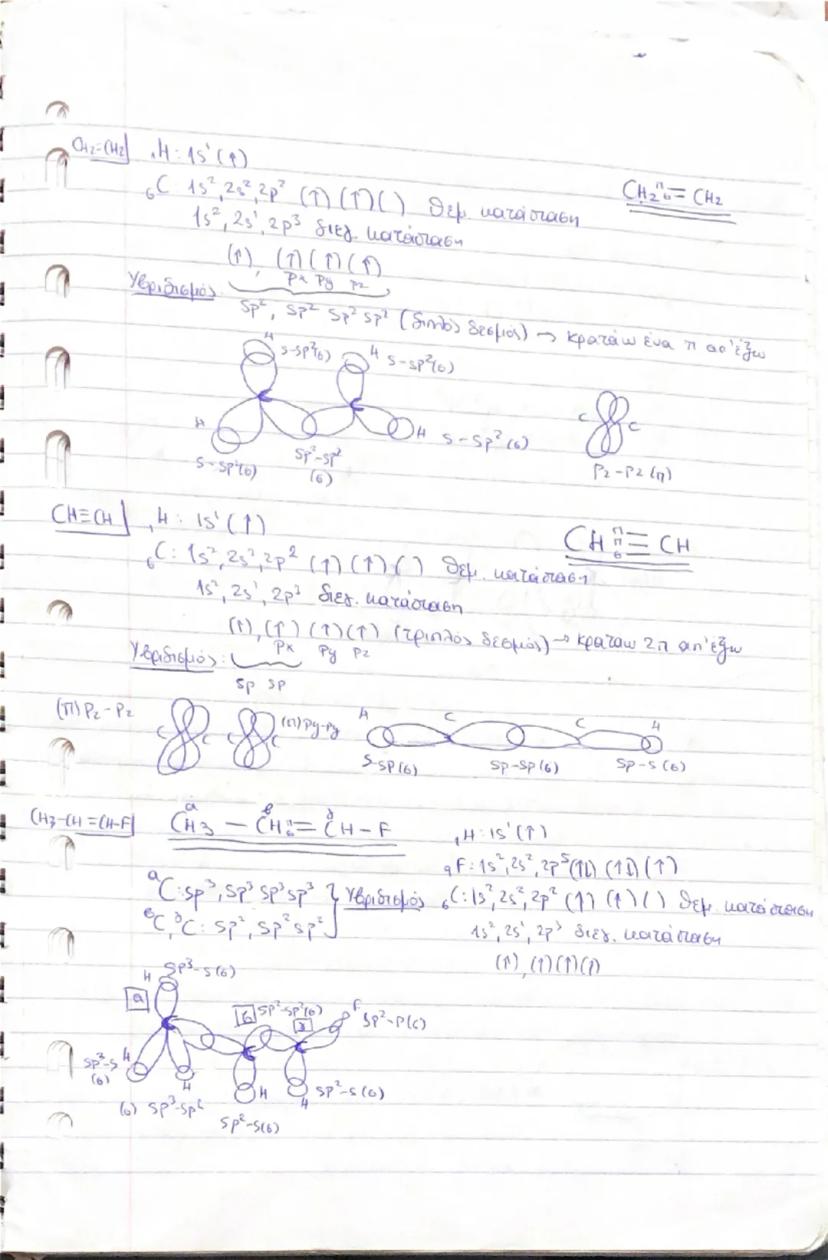 CH₂=CH₂ ₁H: 1s¹ (↑)
₆C: 1s², 2s², 2p² (↑) (↑) ( ) θεμ. κατάσταση
CH₂ π σ = CH₂
1s², 2s¹, 2p³ διεγ. κατάσταση
(↑), (↑) (↑) (↑)
Px Py Pz
Υβριδισμός
sp², sp² sp² sp² (διπλός δεσμός) → κρατάω ένα π απ' έξω
H s-sp²(σ) H s-sp²(σ)
H H s-sp²(σ) C C
s-sp²(σ) sp²-sp² (σ) Pz-Pz (π)
CH≡CH ₁H: 1s¹ (↑)
CH π π σ ≡ CH
₆C: 1s², 2s², 2p² (↑) (↑) ( ) θεμ. κατάσταση
1s², 2s¹, 2p³ διεγ. κατάσταση
(↑), (↑) (↑) (↑) (τριπλός δεσμός) → κρατάω 2π απ' έξω
Px Py Pz
Υβριδισμός:
sp sp
(π) Pz-Pz C C (π) Py-Py H C C H
s-sp(σ) sp-sp(σ) sp-s(σ)
CH₃-CH=CH-F α β γ
CH₃ — CH π σ = CH — F ₁H: 1s¹ (↑)
₉F: 1s², 2s², 2p⁵ (↑↓) (↑↓) (↑)
αC: sp³, sp³ sp³ sp³ Υβριδισμός ₆C: 1s², 2s², 2p² (↑) (↑) ( ) θεμ. κατάσταση
βC, γC: sp², sp² sp² 1s², 2s¹, 2p³ διεγ. κατάσταση
(↑), (↑) (↑) (↑)
H sp³-s(σ)
α β sp²-sp²(σ) γ F sp²-p(σ)
sp³-s (σ) H H H H sp²-s(σ)
(σ) sp³-sp² sp²-s(σ)